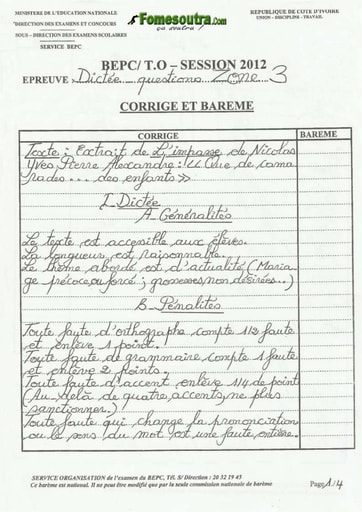 MINISTERE DE L'EDUCATION NATIONALE
DIRECTION DES EXAMENS ET CONCOURS
SOUS – DIRECTION DES EXAMENS SCOLAIRES
SERVICE BEPC
Fomesoutra.com
ça soutra !
REPUBLIQUE DE COTE D'IVOIRE
UNION – DISCIPLINE – TRAVAIL
BEPC/ T.O – SESSION 2012
EPREUVE : Dictée questions Zone 3
CORRIGE ET BAREME
CORRIGE
BAREME
Texte : Extrait de L'impasse de Nicolas
Yves Pierre Alexandre : « Que de cama
rades ... des enfants »
I_Dictée
A_Généralités
Le texte est accessible aux élèves.
La longueur est raisonnable.
Le thème abordé est d'actualité (Maria
ge précoce ou forcé ; grossesses non désirées...)
B_Pénalités
Toute faute d'orthographe compte 1/2 faute
et enlève 1 point.
Toute faute de grammaire compte 1 faute
et enlève 2 points.
Toute faute d'accent enlève 1/4 de point
(Au-delà de quatre accents, ne plus
sanctionner.)
Toute faute qui change la prononciation
ou le sens du mot est une faute entière.
SERVICE ORGANISATION de l'examen du BEPC, Tél. S/ Direction : 20 32 19 45
Ce barème est national. Il ne peut être modifié que par la seule commission nationale de barème
Page 1/4